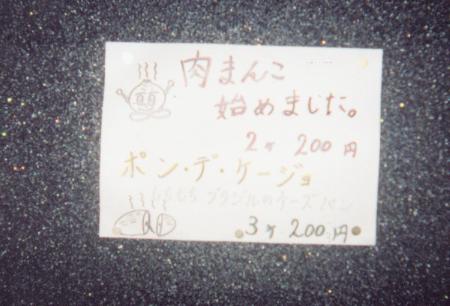 肉まんこ
始めました。
2ヶ 200円
ポン・デ・ケージョ
もちもち ブラジルのチーズパン
3ヶ 200円